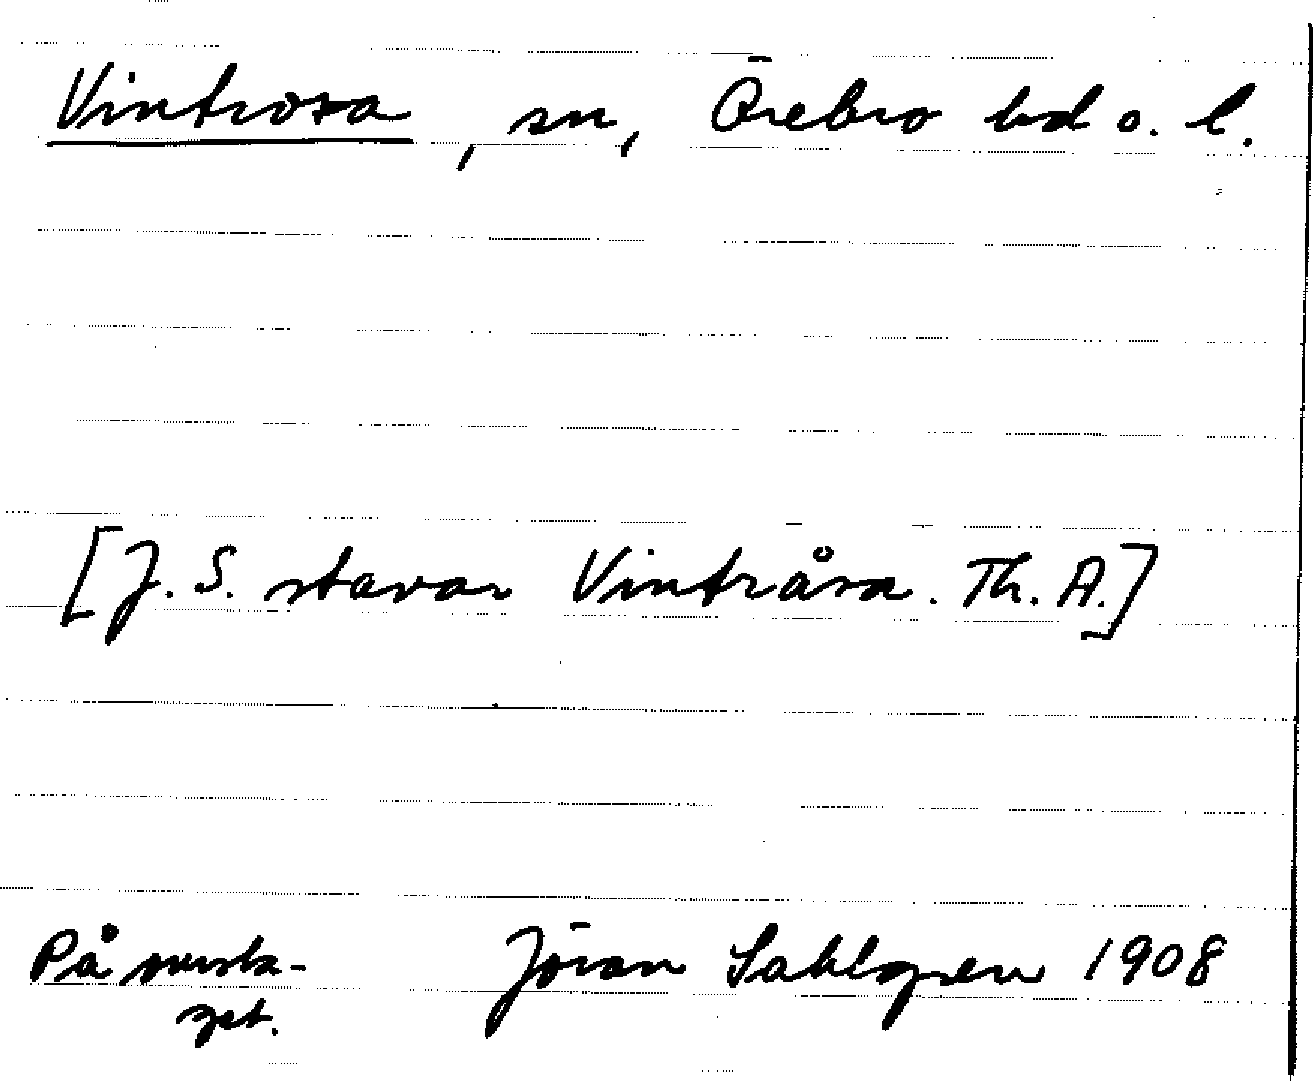 Vintrosa, sn, Örebro hd o. l.
[J. S. stavar Vintråsa. Th. A.]
På omsla-
get. Jöran Sahlgren 1908